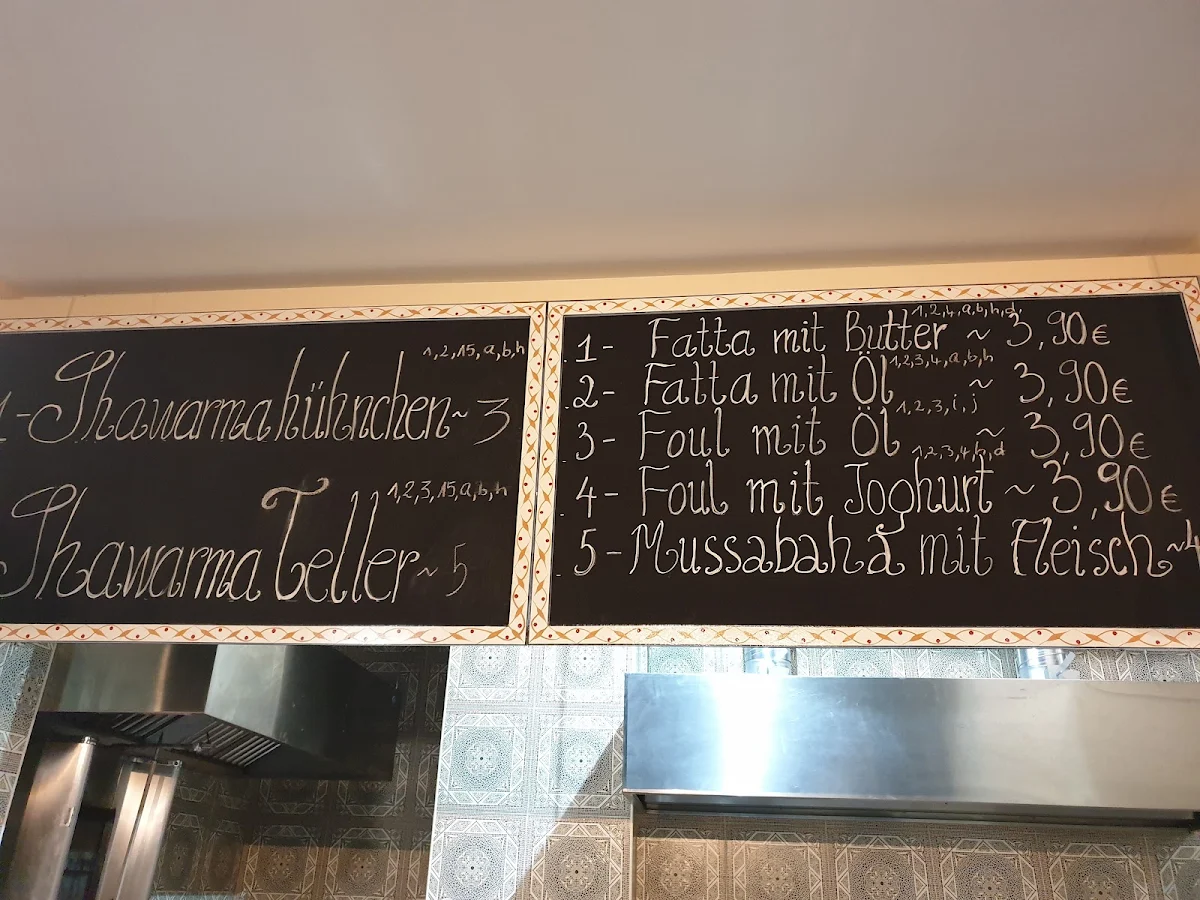 1-Shawarmahühnchen~ 3 1,2,15,a,b,h
Shawarma Teller~ 5 1,2,3,15,a,b,h
1- Fatta mit Butter 1,2,4,a,b,h,d ~ 3,90€
2- Fatta mit Öl 1,2,3,4,a,b,h ~ 3,90€
3- Foul mit Öl 1,2,3,i,j ~ 3,90€
4- Foul mit Joghurt 1,2,3,4,h,d ~ 3,90€
5-Mussabaha mit Fleisch ~4